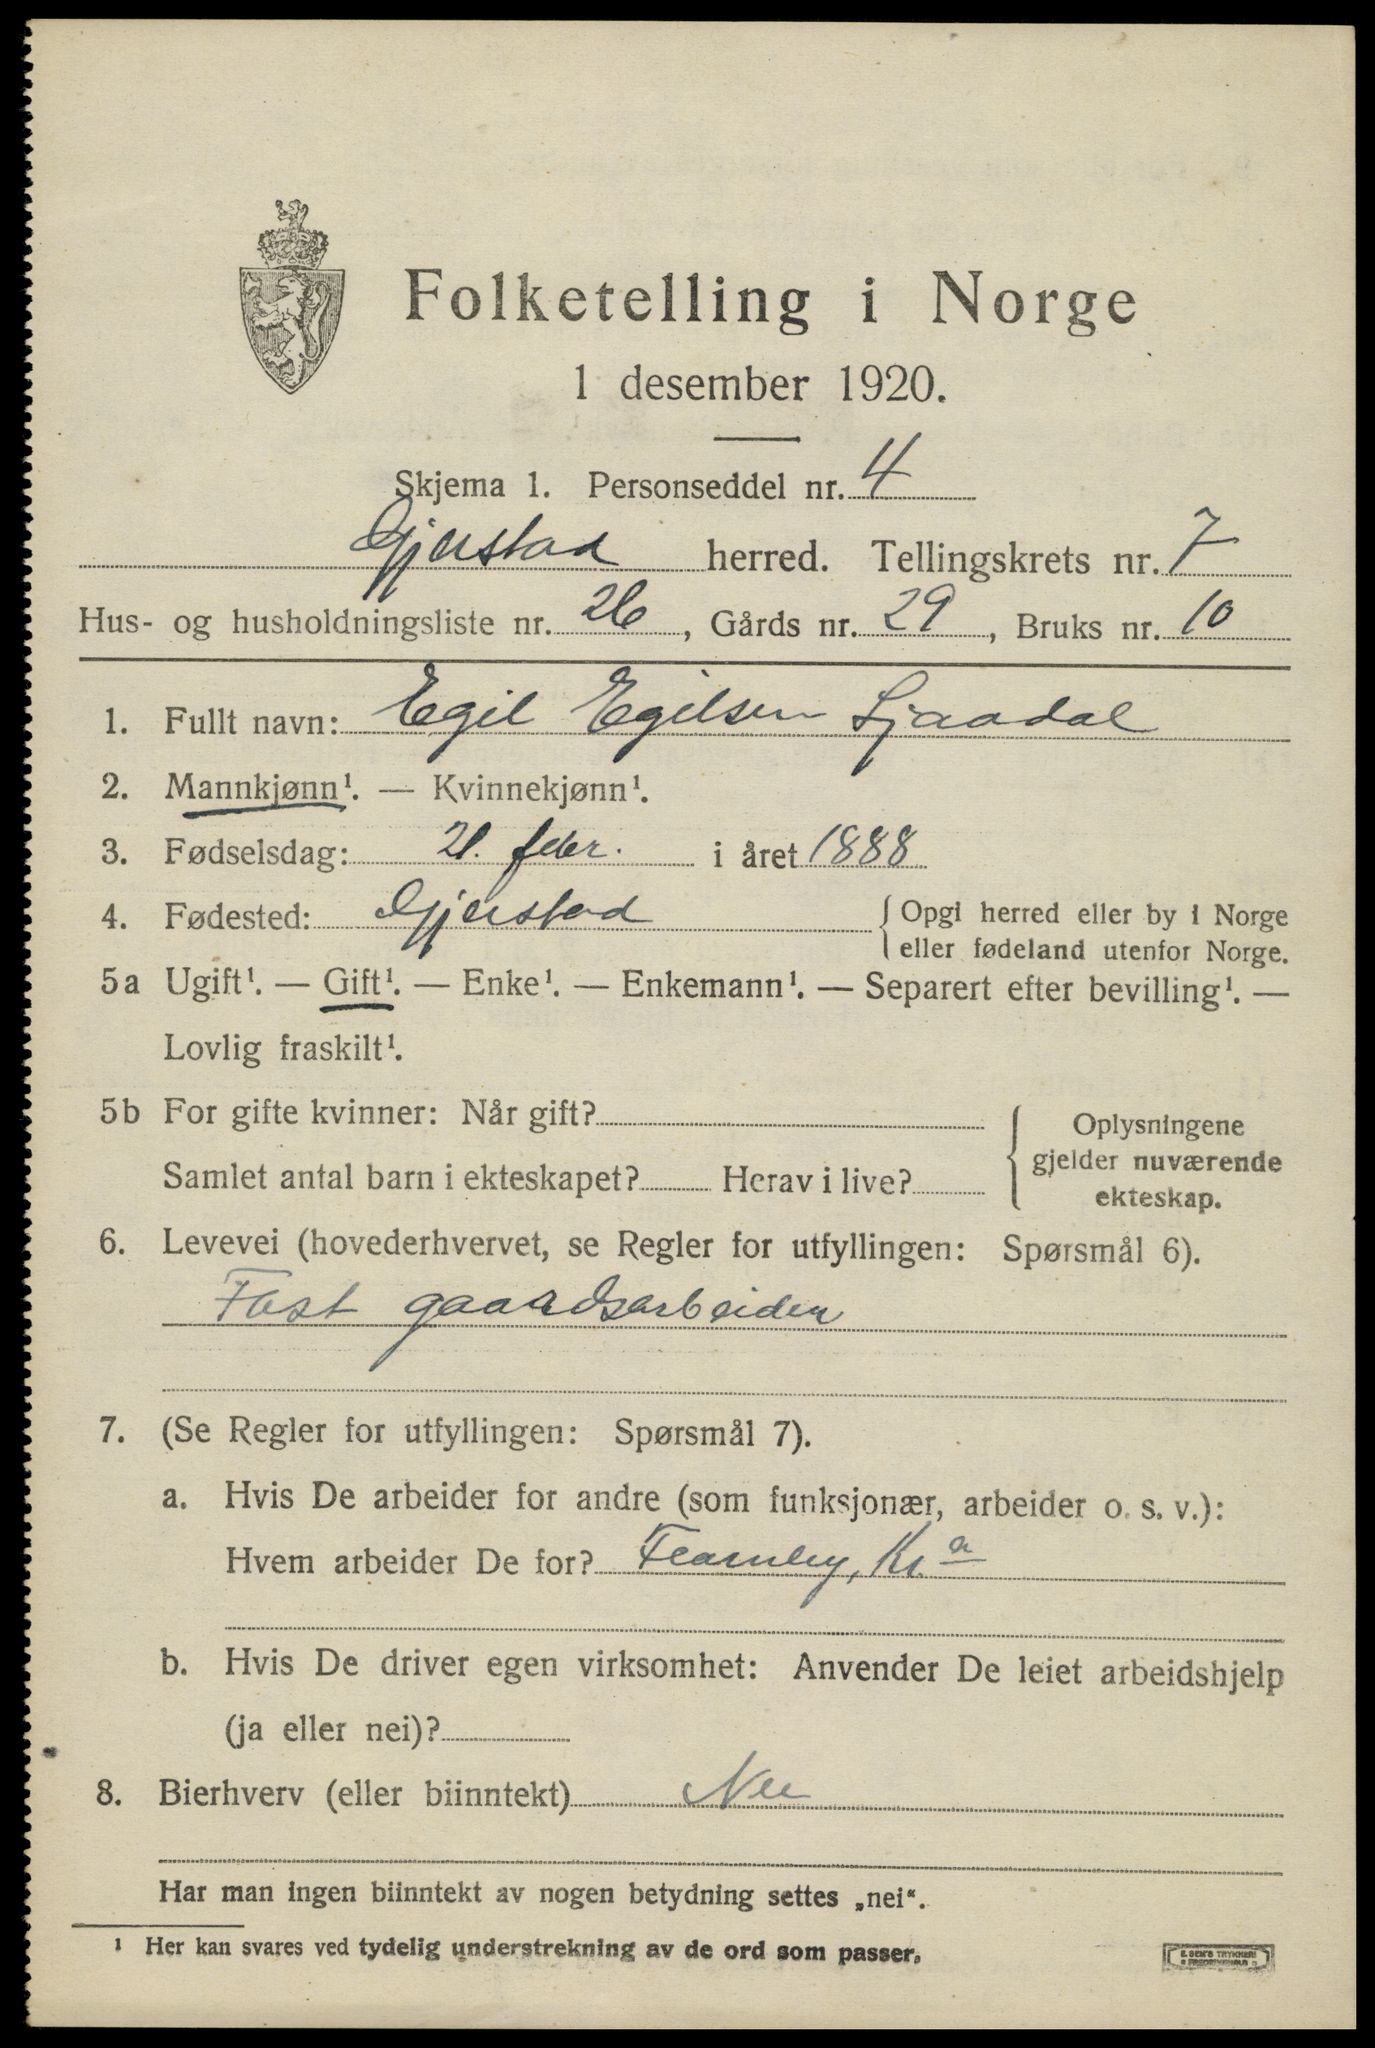 Folketelling i Norge
1 desember 1920.
Skjema 1. Personseddel nr. 4
Gjerstad herred. Tellingskrets nr. 7
Hus- og husholdningsliste nr. 26, Gårds nr. 29, Bruks nr. 10
1. Fullt navn: Egil Egilsen Ljaadal
2. Mannkjønn¹. — Kvinnekjønn¹.
3. Fødselsdag: 21. febr. i året 1888
4. Fødested: Gjerstad { Opgi herred eller by i Norge
eller fødeland utenfor Norge.
5a Ugift¹. — Gift¹. — Enke¹. — Enkemann¹. — Separert efter bevilling¹. —
Lovlig fraskilt¹.
5b For gifte kvinner: Når gift? { Oplysningene
gjelder nuværende
Samlet antal barn i ekteskapet? Herav i live? ekteskap.
6. Levevei (hovederhvervet, se Regler for utfyllingen: Spørsmål 6).
Fast gaardsarbeider
7. (Se Regler for utfyllingen: Spørsmål 7).
a. Hvis De arbeider for andre (som funksjonær, arbeider o. s. v.):
Hvem arbeider De for? Fearnley, Kr.a
b. Hvis De driver egen virksomhet: Anvender De leiet arbeidshjelp
(ja eller nei)?
8. Bierhverv (eller biinntekt) Nei
Har man ingen biinntekt av nogen betydning settes „nei“.
¹ Her kan svares ved tydelig understrekning av de ord som passer.